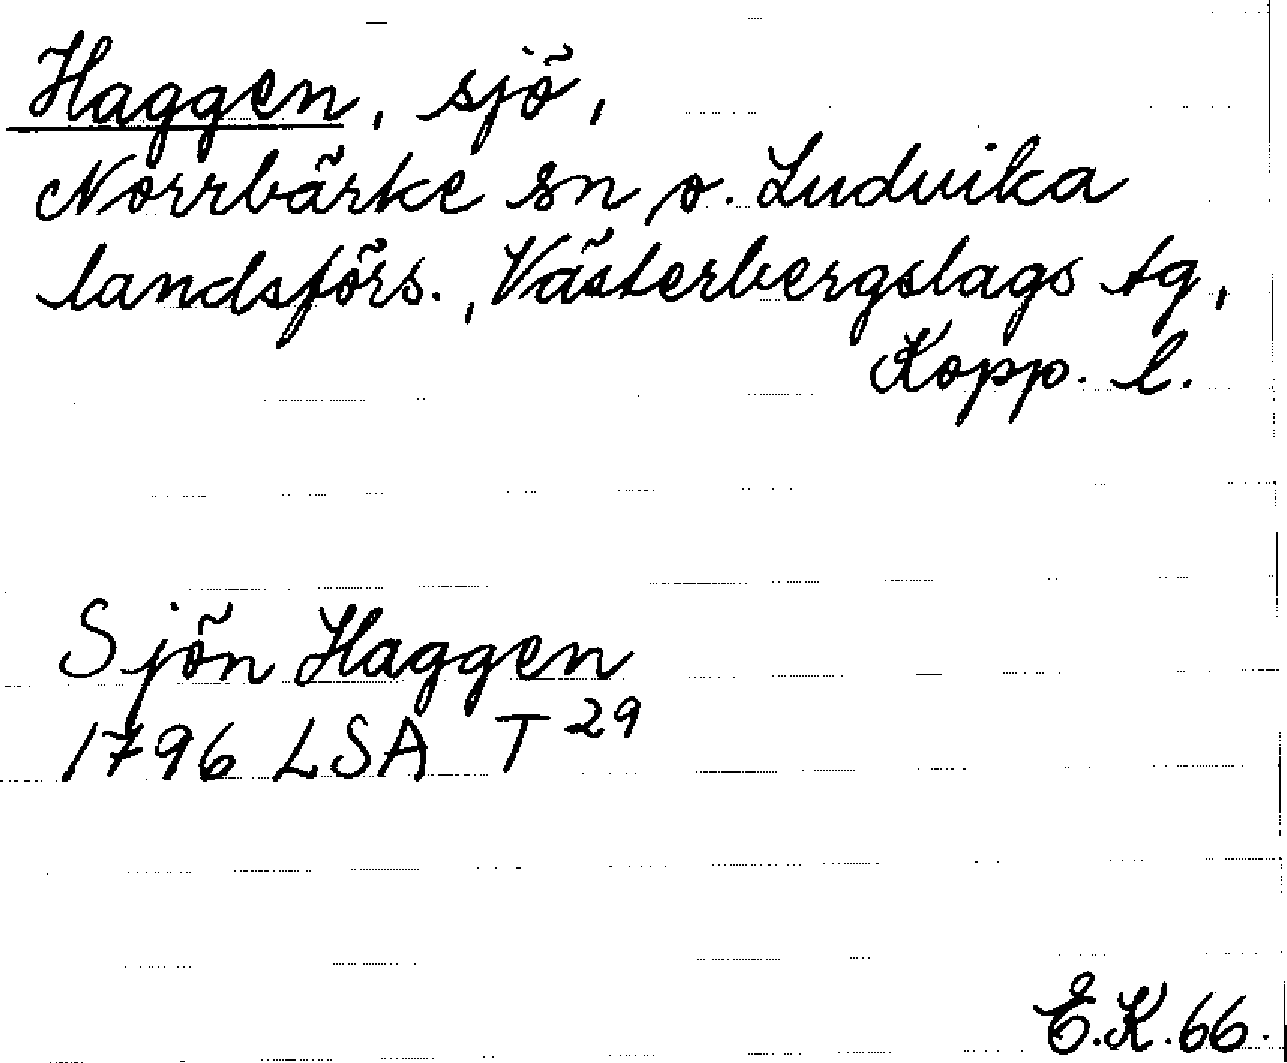 Haggen, sjö,
Norrbärke sn o. Ludvika
landsförs., Västerbergslags tg,
Kopp. l.
Sjön Haggen
1796 LSA T 29
E.K. 66.